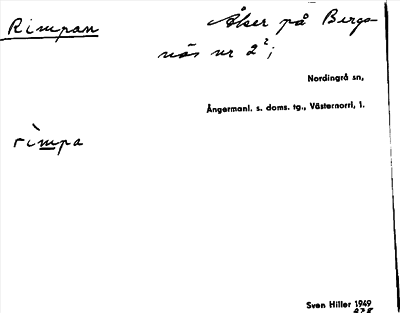 Rimpan
Åker på Bergs-
näs nr 2²;
Nordingrå sn,
Ångermanl. s. doms. tg., Västernorrl, l.
rìmpa
Sven Hiller 1949